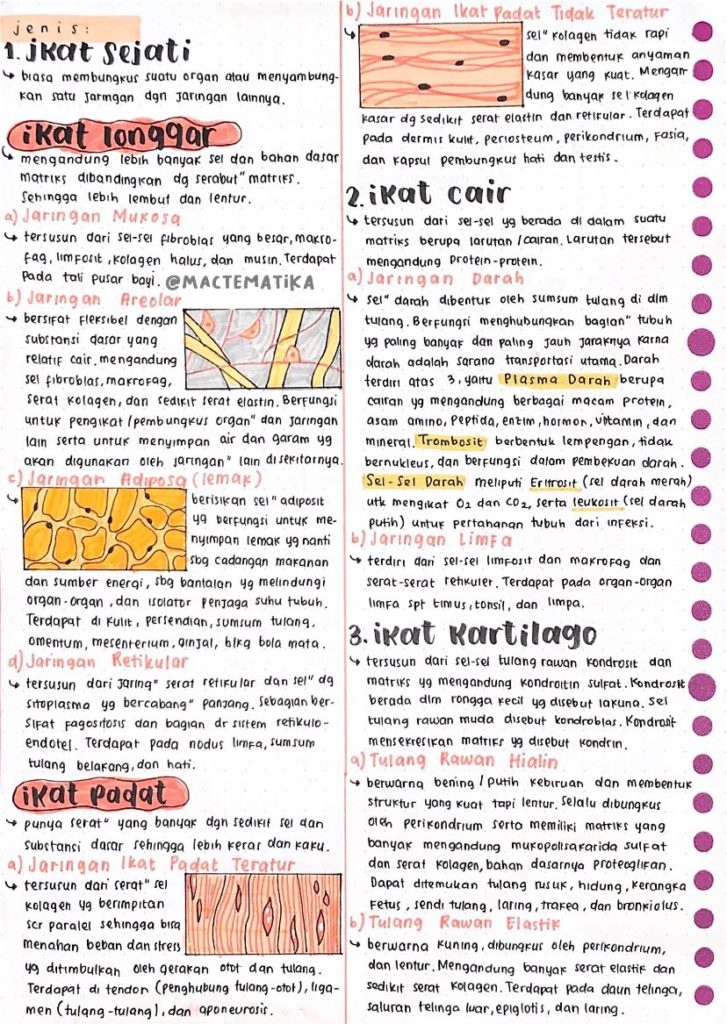 jenis:
1. ikat sejati
↳ biasa membungkus suatu organ atau menyambung-
kan satu jaringan dgn jaringan lainnya.
ikat longgar
↳ mengandung lebih banyak sel dan bahan dasar
matriks dibandingkan dg serabut" matriks.
Sehingga lebih lembut dan lentur.
a) Jaringan Mukosa
↳ tersusun dari sel-sel fibroblas yang besar, makro-
fag, limfosit, kolagen halus, dan musin. Terdapat
pada tali pusar bayi. @MACTEMATIKA
b) Jaringan Areolar
↳ bersifat fleksibel dengan
substansi dasar yang
relatif cair. mengandung
sel fibroblas, makrofag,
serat kolagen, dan sedikit serat elastin. Berfungsi
untuk pengikat/pembungkus organ" dan jaringan
lain serta untuk menyimpan air dan garam yg
akan digunakan oleh jaringan" lain disekitarnya.
c) Jaringan Adiposa (lemak)
↳ berisikan sel" adiposit
yg berfungsi untuk me-
nyimpan lemak yg nanti
sbg cadangan makanan
dan sumber energi, sbg bantalan yg melindungi
organ-organ, dan isolator penjaga suhu tubuh.
Terdapat di kulit, persendian, sumsum tulang,
omentum, mesenterium, ginjal, blkg bola mata.
d) Jaringan Retikular
↳ tersusun dari jaring" serat retikular dan sel" dg
sitoplasma yg bercabang" panjang. Sebagian ber-
sifat fagositosis dan bagian dr sistem retikulo-
endotel. Terdapat pada nodus limfa, sumsum
tulang belakang, dan hati.
ikat padat
↳ punya serat" yang banyak dgn sedikit sel dan
substansi dasar sehingga lebih keras dan kaku.
a) Jaringan Ikat Padat Teratur
↳ tersusun dari serat" sel
kolagen yg berimpitan
scr paralel sehingga bisa
menahan beban dan stress
yg ditimbulkan oleh gerakan otot dan tulang.
Terdapat di tendon (penghubung tulang-otot), liga-
men (tulang-tulang), dan aponeurosis.
b) Jaringan Ikat Padat Tidak Teratur
↳ sel" kolagen tidak rapi
dan membentuk anyaman
kasar yang kuat. Mengan-
dung banyak sel kolagen
kasar dg sedikit serat elastin dan retikular. Terdapat
pada dermis kulit, periosteum, perikondrium, fasia,
dan kapsul pembungkus hati dan testis.
2. ikat cair
↳ tersusun dari sel-sel yg berada di dalam suatu
matriks berupa larutan/cairan. Larutan tersebut
mengandung protein-protein.
a) Jaringan Darah
↳ sel" darah dibentuk oleh sumsum tulang di dlm
tulang. Berfungsi menghubungkan bagian" tubuh
yg paling banyak dan paling jauh jaraknya karna
darah adalah sarana transportasi utama. Darah
terdiri atas 3, yaitu Plasma Darah berupa
cairan yg mengandung berbagai macam protein,
asam amino, peptida, enzim, hormon, vitamin, dan
mineral. Trombosit berbentuk lempengan, tidak
bernukleus, dan berfungsi dalam pembekuan darah.
Sel-Sel Darah meliputi Eritrosit (sel darah merah)
utk mengikat O2 dan CO2, serta leukosit (sel darah
putih) untuk pertahanan tubuh dari infeksi.
b) Jaringan Limfa
↳ terdiri dari sel-sel limfosit dan makrofag dan
serat-serat retikuler. Terdapat pada organ-organ
limfa spt timus, tonsil, dan limpa.
3. ikat kartilago
↳ tersusun dari sel-sel tulang rawan kondrosit dan
matriks yg mengandung kondroitin sulfat. Kondrosit
berada dlm rongga kecil yg disebut lakuna. Sel
tulang rawan muda disebut kondroblas. Kondrosit
mensekresikan matriks yg disebut kondrin.
a) Tulang Rawan Hialin
↳ berwarna bening/putih kebiruan dan membentuk
struktur yang kuat tapi lentur. selalu dibungkus
oleh perikondrium serta memiliki matriks yang
banyak mengandung mukopolisakarida sulfat
dan serat kolagen, bahan dasarnya proteoglikan.
Dapat ditemukan tulang rusuk, hidung, kerangka
fetus, sendi tulang, laring, trakea, dan bronkiolus.
b) Tulang Rawan Elastik
↳ berwarna kuning, dibungkus oleh perikondrium,
dan lentur. Mengandung banyak serat elastik dan
sedikit serat kolagen. Terdapat pada daun telinga,
saluran telinga luar, epiglotis, dan laring.